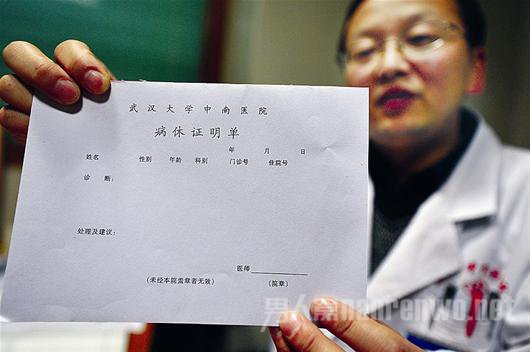 武汉大学中南医院
病休证明单
年 月 日
姓名 性别 年龄 科别 门诊号 住院号
诊 断：
处理及建议：
医师
(未经本院盖章者无效) (院章)
男人窝nanrenwo.net